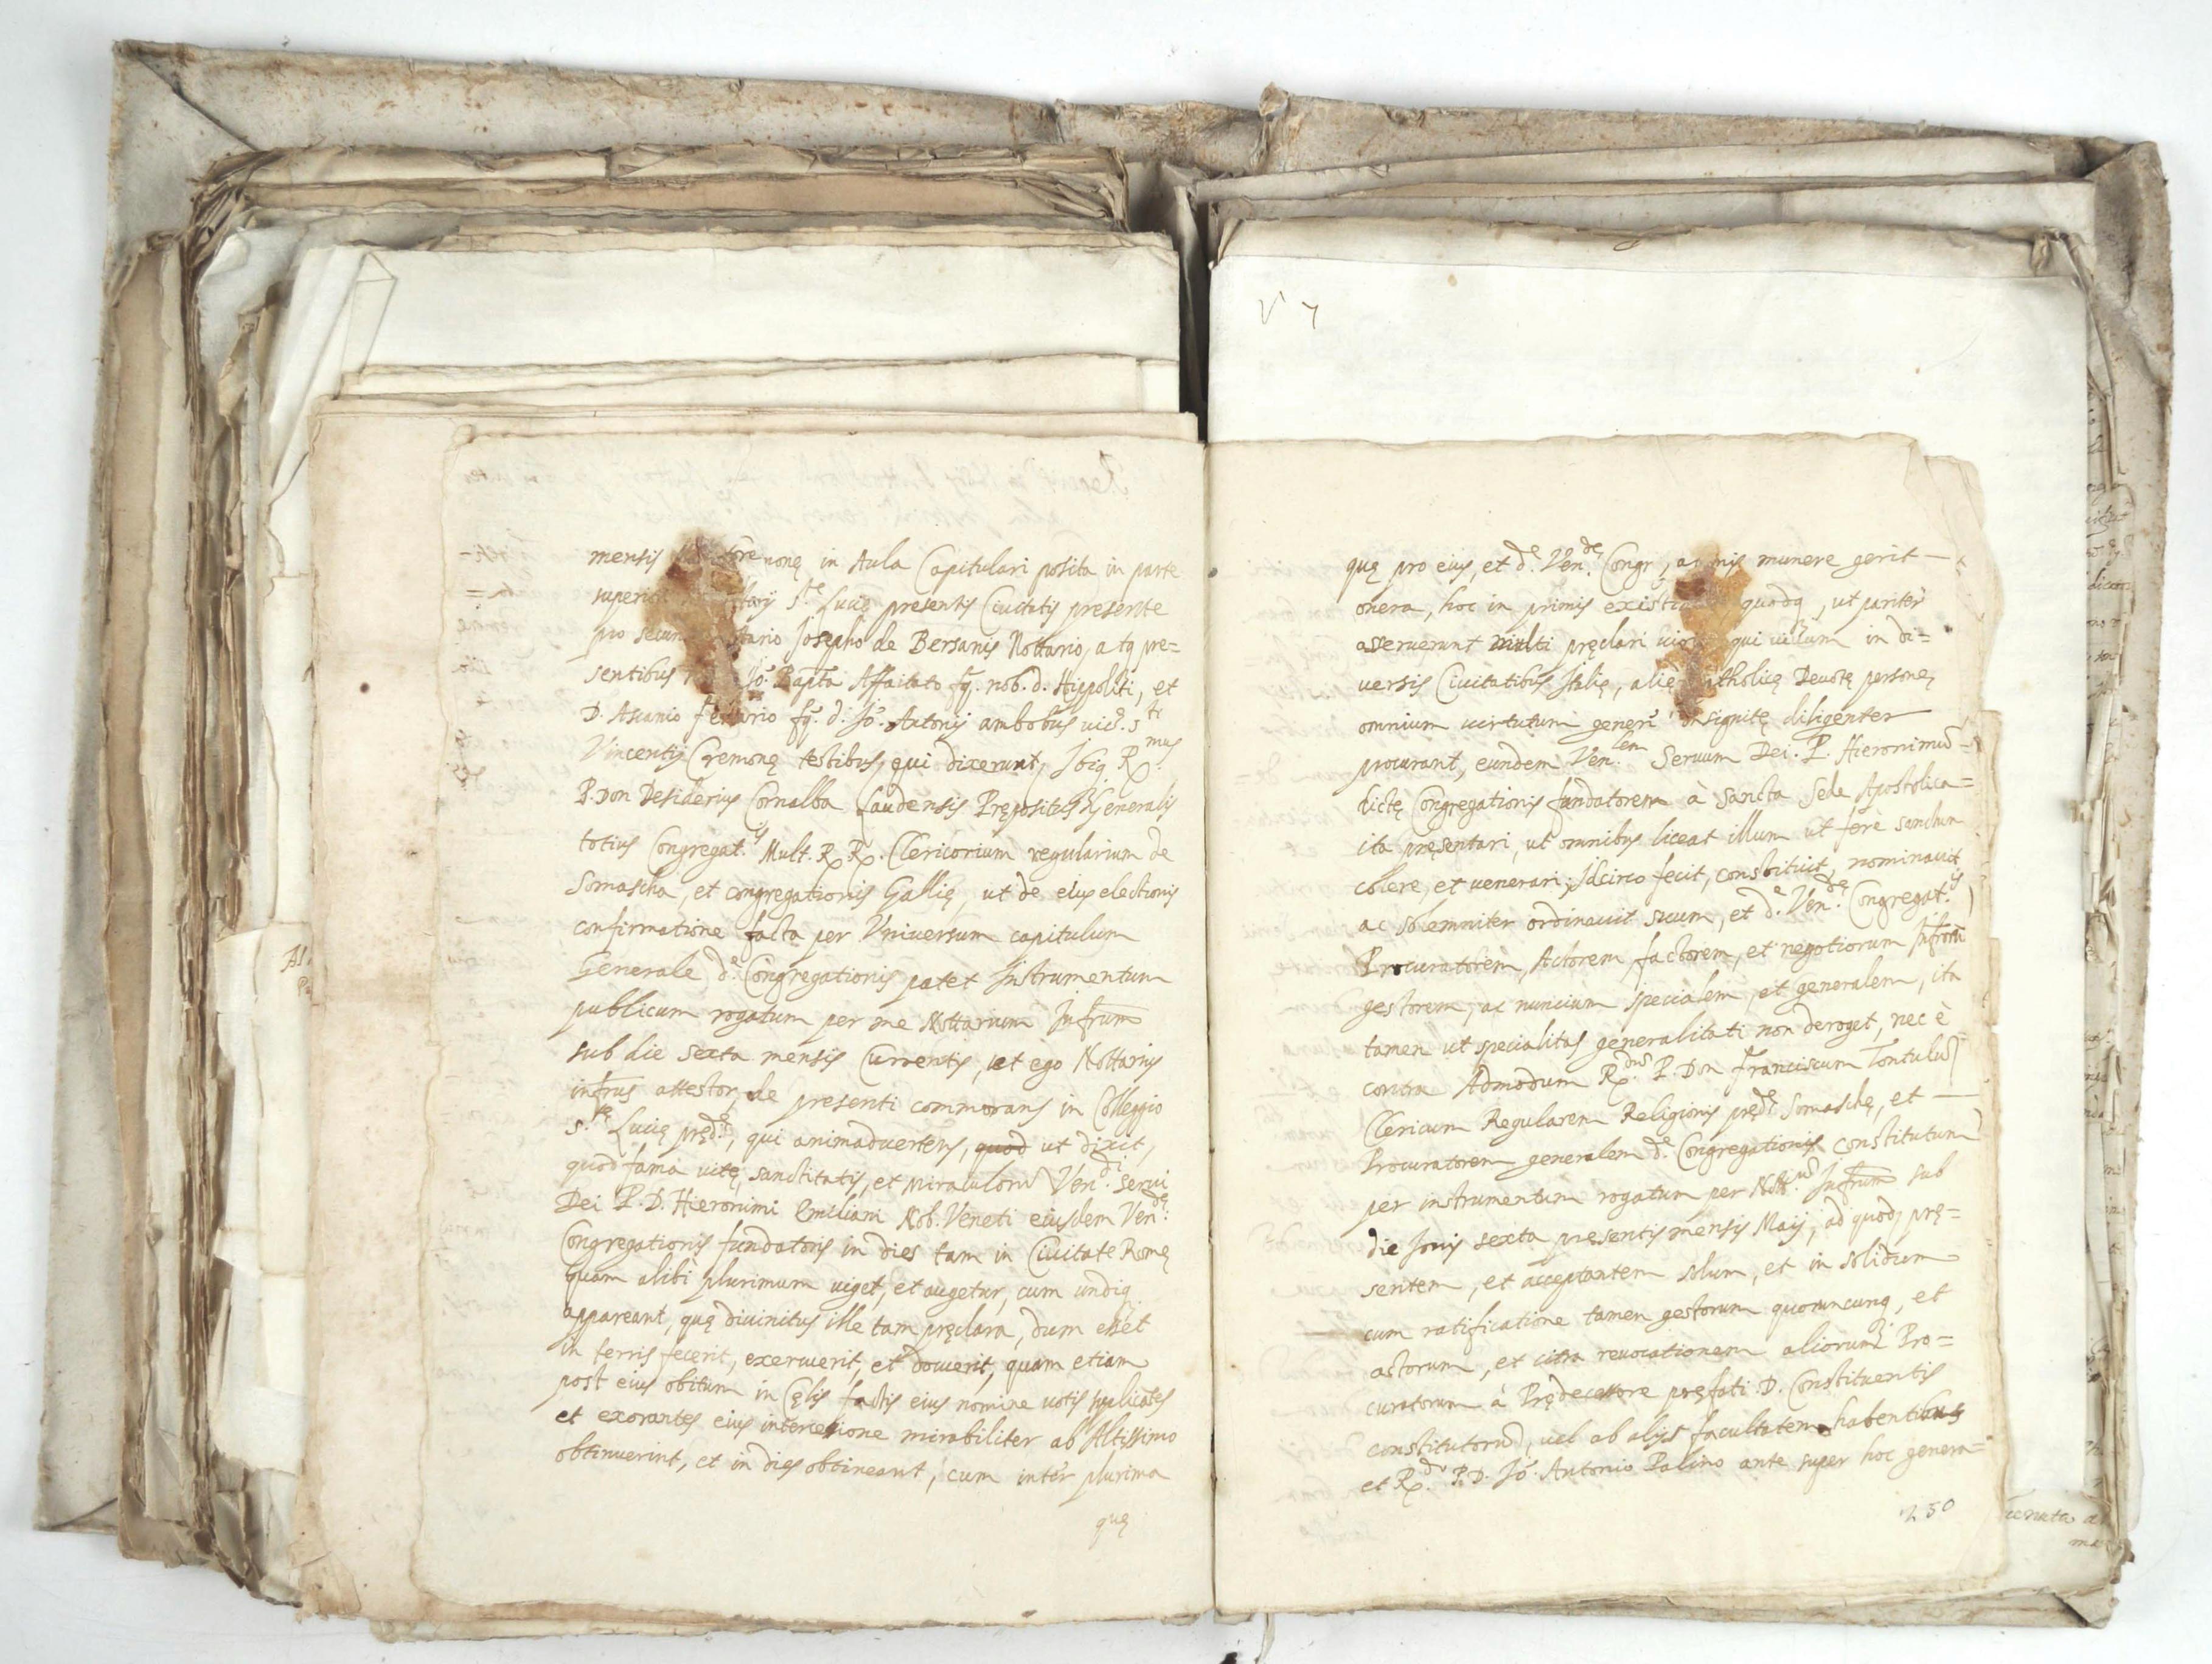 mensis nonę in Aula Capitulari posita in parte
S.te Lucię presentis Ciuitatis presente
pro Josepho de Bersanis Nottario, atq pre=
sentibus Jo. Bapta Affaitato fq. nob. d. Hippoliti, et
D. Ascanio fq. d. Jo. Antonij ambobus uic. S.ti
Vincentij Cremonę testibus, qui dixerunt, Ibiq R.mus
P. Don Desiderius Cornalba Laudensis Prępositus Generalis
totius Congregat.is Mult. RR. Clericorium regularium de
Somascha, et congregationis Gallię, ut de eius electionis
confirmatione facta per Vniuersum capitulum
Generale d.e Congregationis patet Instrumentum
publicum rogatum per me Nottarium Infrum
sub die sexta mensis Currentis, et ego Nottarius
infrus attestor, de presenti commorans in Colleggio
S.te Lucię pręd.e, qui animaduertens, quod ut dixit,
quod fama uitę, sanctitatis, et miraculorū Ven.di Serui
Dei P. D. Hieronimi Emiliani Nob. Veneti eiusdem Ven.de
Congregationis fundatoris in dies tam in Ciuitate Romę
quam alibi plurimum uiget, et augetur, cum undiq
appareant, quę diuinitus ille tam pręclara, dum esset
in terris fecerit, exercuerit, et docuerit, quam etiam
post eius obitum in Cęlis factis eius nomine uotis supplicātes
et exorantes eius intercessione mirabiliter ab Altissimo
obtinuerint, et in dies obtineant, cum inter plurima
quę
V 7
quę pro eius, et d.e Ven.de Congr munere gerit —
onera, hoc in primis quodq, ut pariter
asseruerunt multi pręclari qui in di=
uersis Ciuitatibus Italię, Deuotę personę,
omnium uirtutum generi insignitę diligenter
procurant, eundem Ven.lem Seruum Dei. P. Hieronimū =
dictę Congregationis fundatorem à Sancta Sede Apostolica =
ita pręsentari, ut omnibus liceat illum ut fere sanctum
colere, et uenerari; Idcirco fecit, constituit, nominauit
ac solemniter ordinauit suum, et d.e Ven.de Congregat.is
Procuratorem, Actorem, factorem, et negotiorum Infrorū
gestorem, ac nuncium specialem, et generalem, ita
tamen ut specialitas generalitati non deroget, nec è
contra Admodum R.dum P. Don Franciscum Tontulū
Clericum Regularem Religionis pręd.e Somaschę, et —
Procuratorem generalem d.e Congregationis constitutum
per instrumentum rogatum per Nott.um Infrum sub
die Jouis sexta presentis mensis Maij, ad quod, prę=
sentem, et acceptantem solum, et in solidum
cum ratificatione tamen gestorum quorumcunq, et
actorum, et citra reuocationem aliorum Pro=
curatorum à Prędecessore pręfati D. Constituentis
constitutorū, uel ab alijs facultatem habentibus
et R.do P. D. Jo. Antonio Palino ante super hoc genera=
250